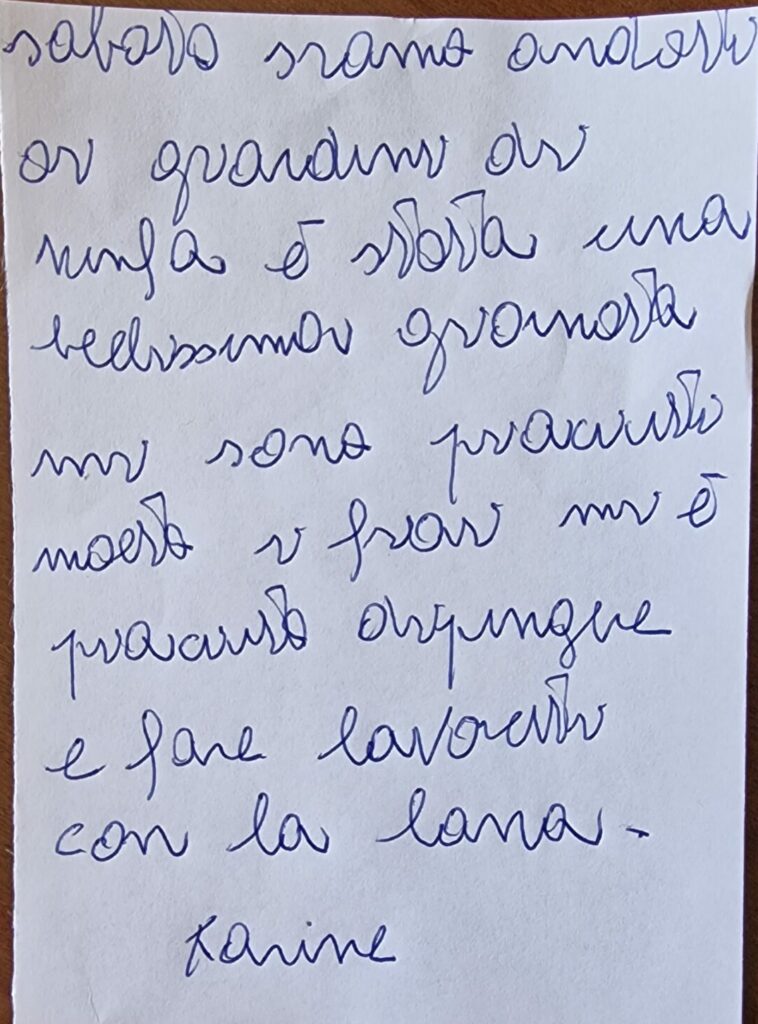 sabato siamo andati
ai giardini di
ninfa è stata una
bellissima giornata
mi sono piaciuti
molto i fiori mi è
piaciuto dipingere
e fare lavoretti
con la lana.
Karine